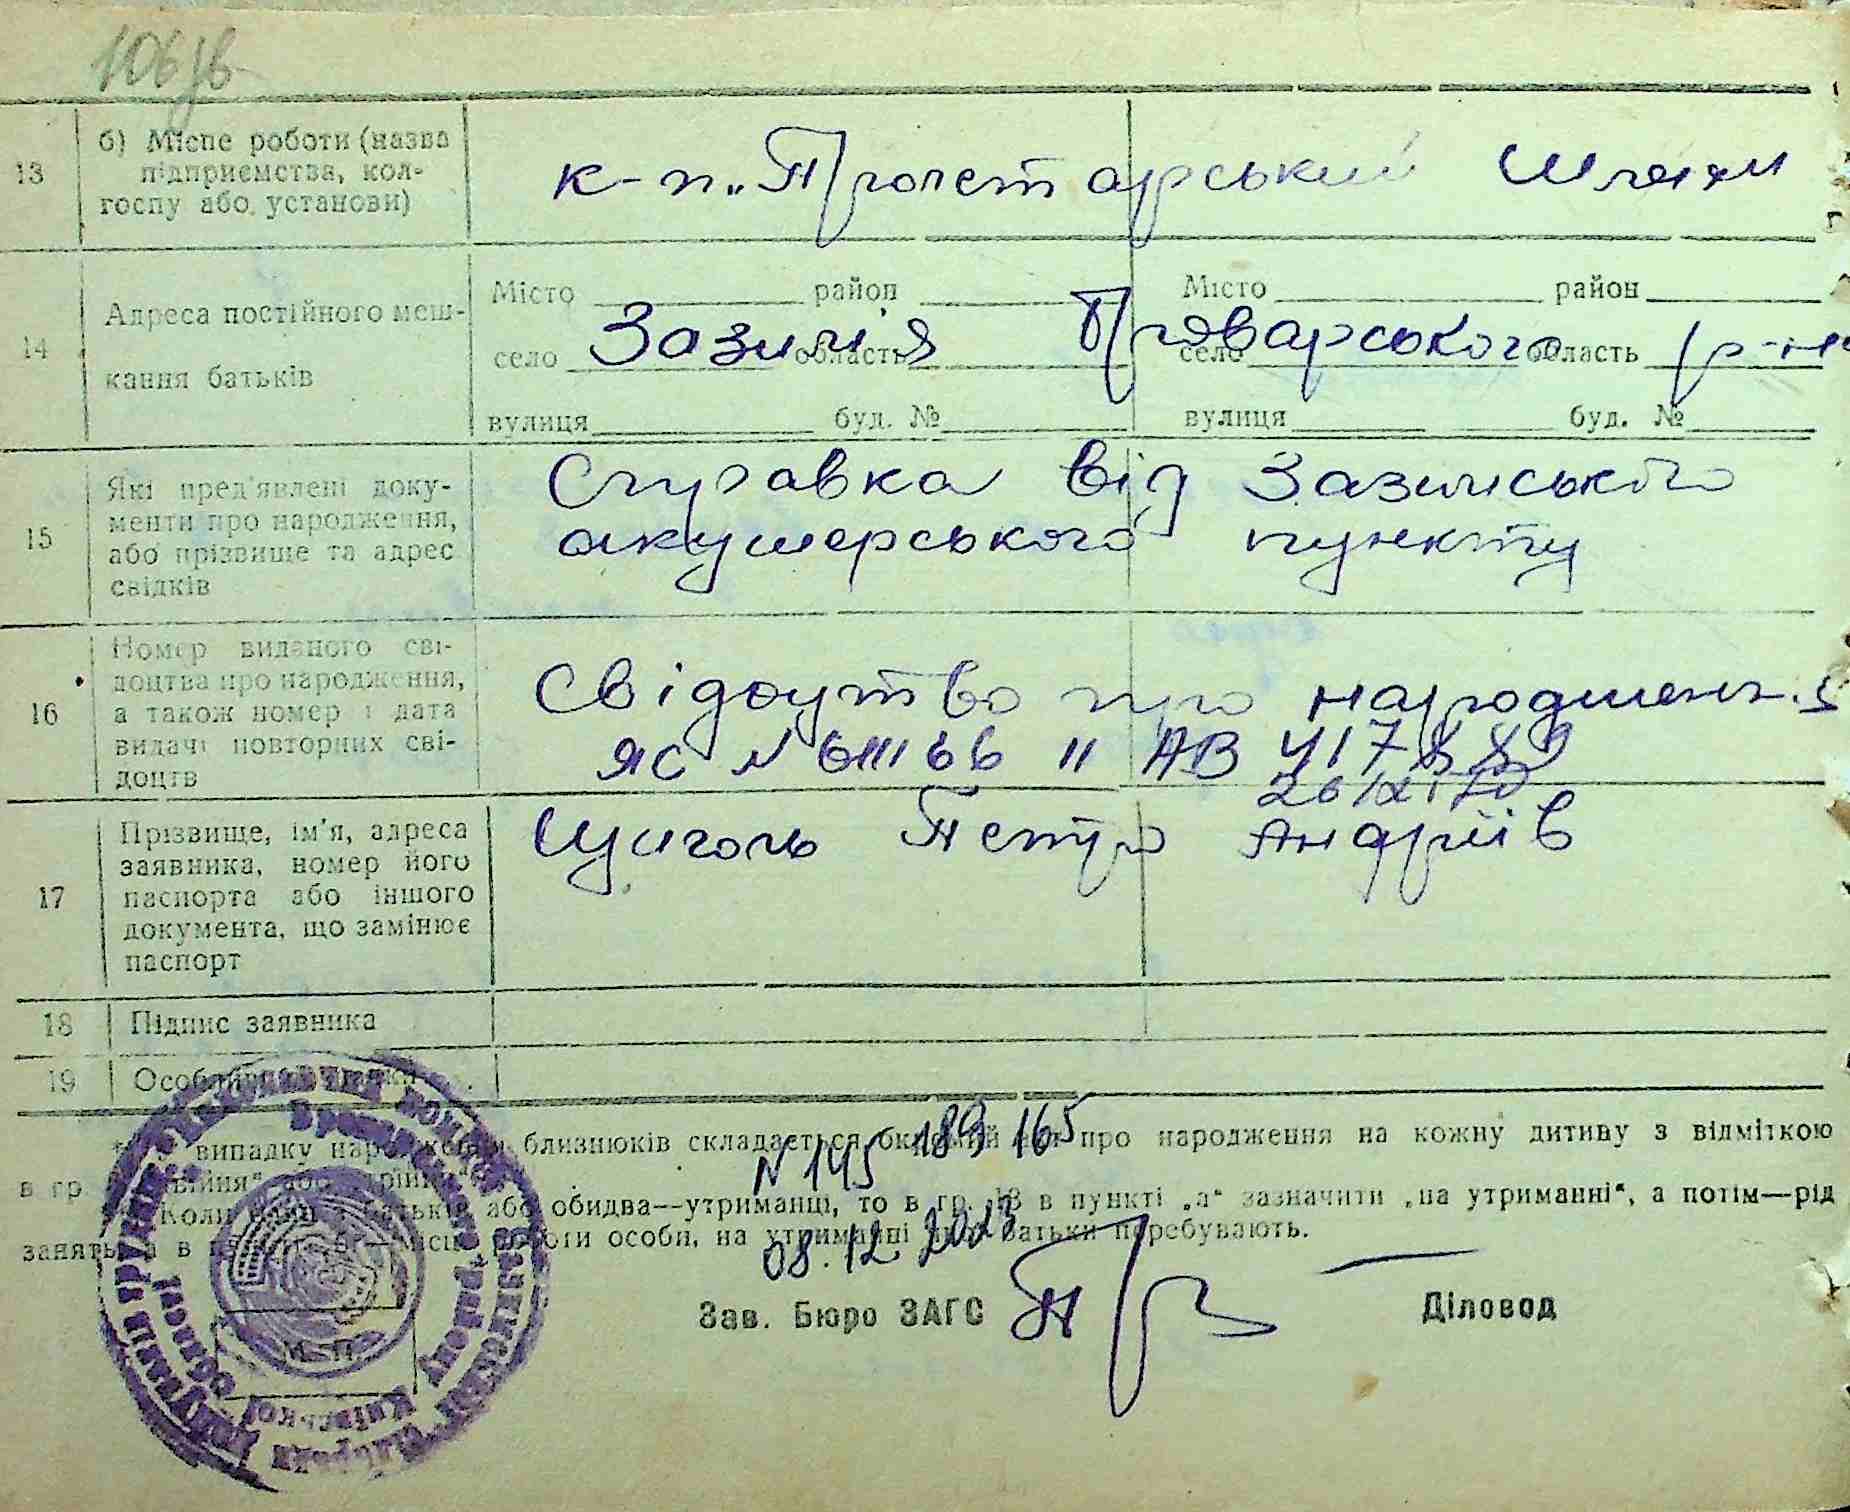 106зв
13 б) Місце роботи (назва
підприємства, кол-
госпу або установи)
к-п „Пролетарський Шлях
14 Адреса постійного меш-
кання батьків
Місто район Місто район
село Зазим'я область Броварського село область р-н
вулиця буд. № вулиця буд. №
15 Які пред'явлені доку-
менти про народження,
або прізвище та адрес
свідків
Справка від Зазимського
акушерського пункту
16 Номер виданого сві-
доцтва про народження,
а також номер і дата
видачі повторних сві-
доцтв
Свідоцтво про народжен
ЯС № 611166 II АВ 417889
17 Прізвище, ім'я, адреса
заявника, номер його
паспорта або іншого
документа, що замінює
паспорт
Циголь Петро Андріїв
18 Підпис заявника
19 Особливі
випадку народження близнюків складається окремий акт про народження на кожну дитину з відміткою
в гр.
№ 145 189 165
Коли батьків або обидва—утриманці, то в гр. 13 в пункті „а“ зазначити „на утриманні“, а потім—рід
занять, а в місце роботи особи, на утриманні батьки перебувають.
08.12.2023
Зав. Бюро ЗАГС Діловод
М. П.
Виконавчий
Броварського району
Київської
області